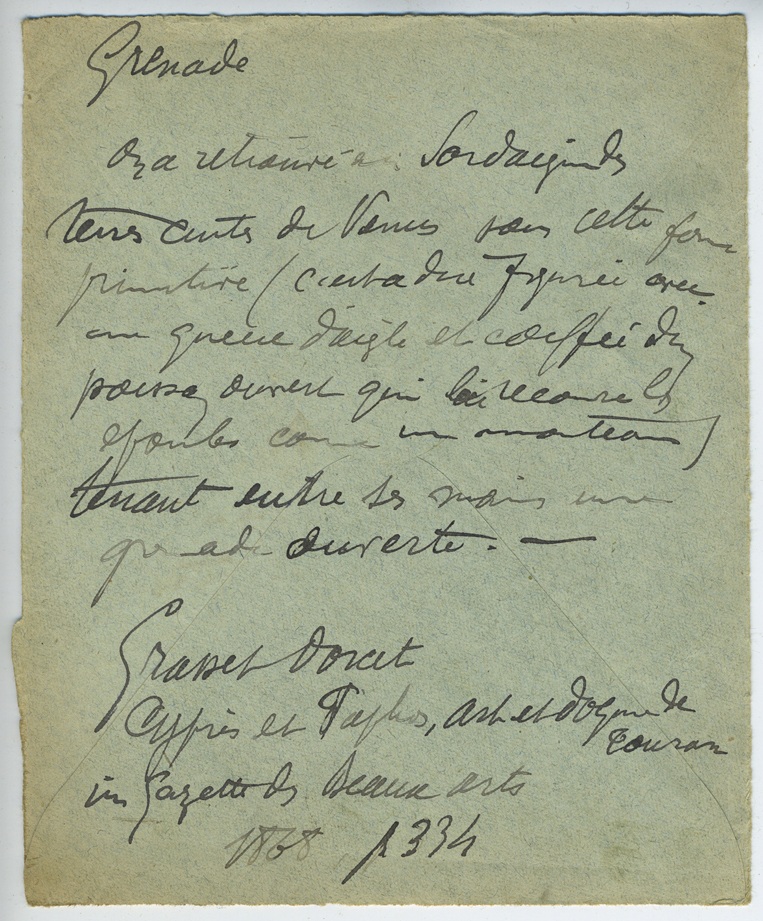 Grenade
on a retrouvé en Sardaigne des
terres cuites de Venus sous cette forme
primitive (c'est a dire figurée avec
une queue d'aigle et coiffée d'un
poisson ouvert qui lui recouvre les
épaules comme un manteau)
tenant entre ses mains une
grenade ouverte. —
Grasset Dorcet
Cypris et Paphos, art et dogme de
Touran
in Gazette des Beaux arts
1868 p 334